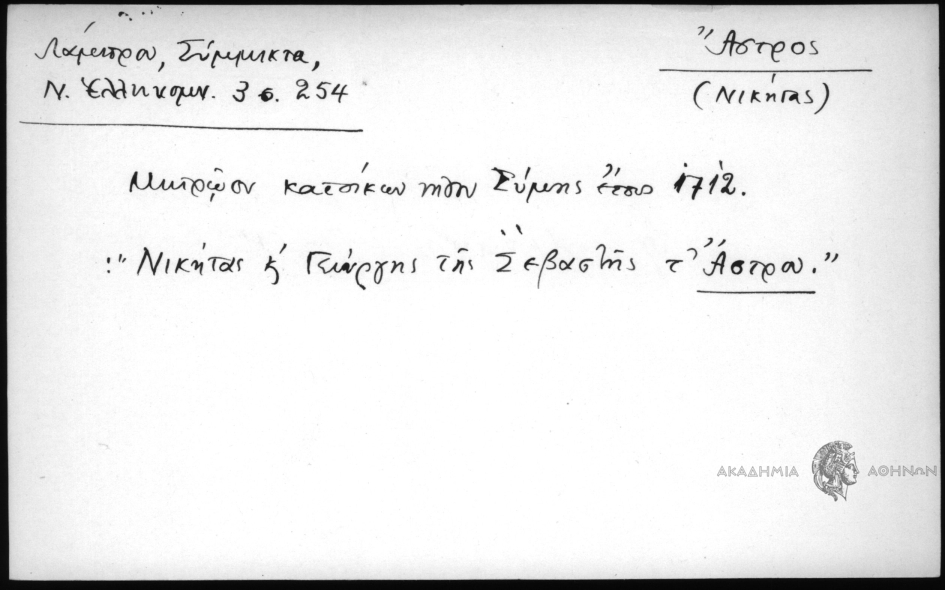 Λάμπρου, Σύμμικτα,
Ν. Ἑλληνομν. 3 σ. 254
Ἄστρος
(Νικήτας)
Μητρῷον κατοίκων νήσου Σύμης ἔτους 1712.
:" Νικήτας κ̓ Γεώργης τῆς Σεβαστῆς τ' Ἄστρου."
ΑΚΑΔΗΜΙΑ ΑΘΗΝΩΝ